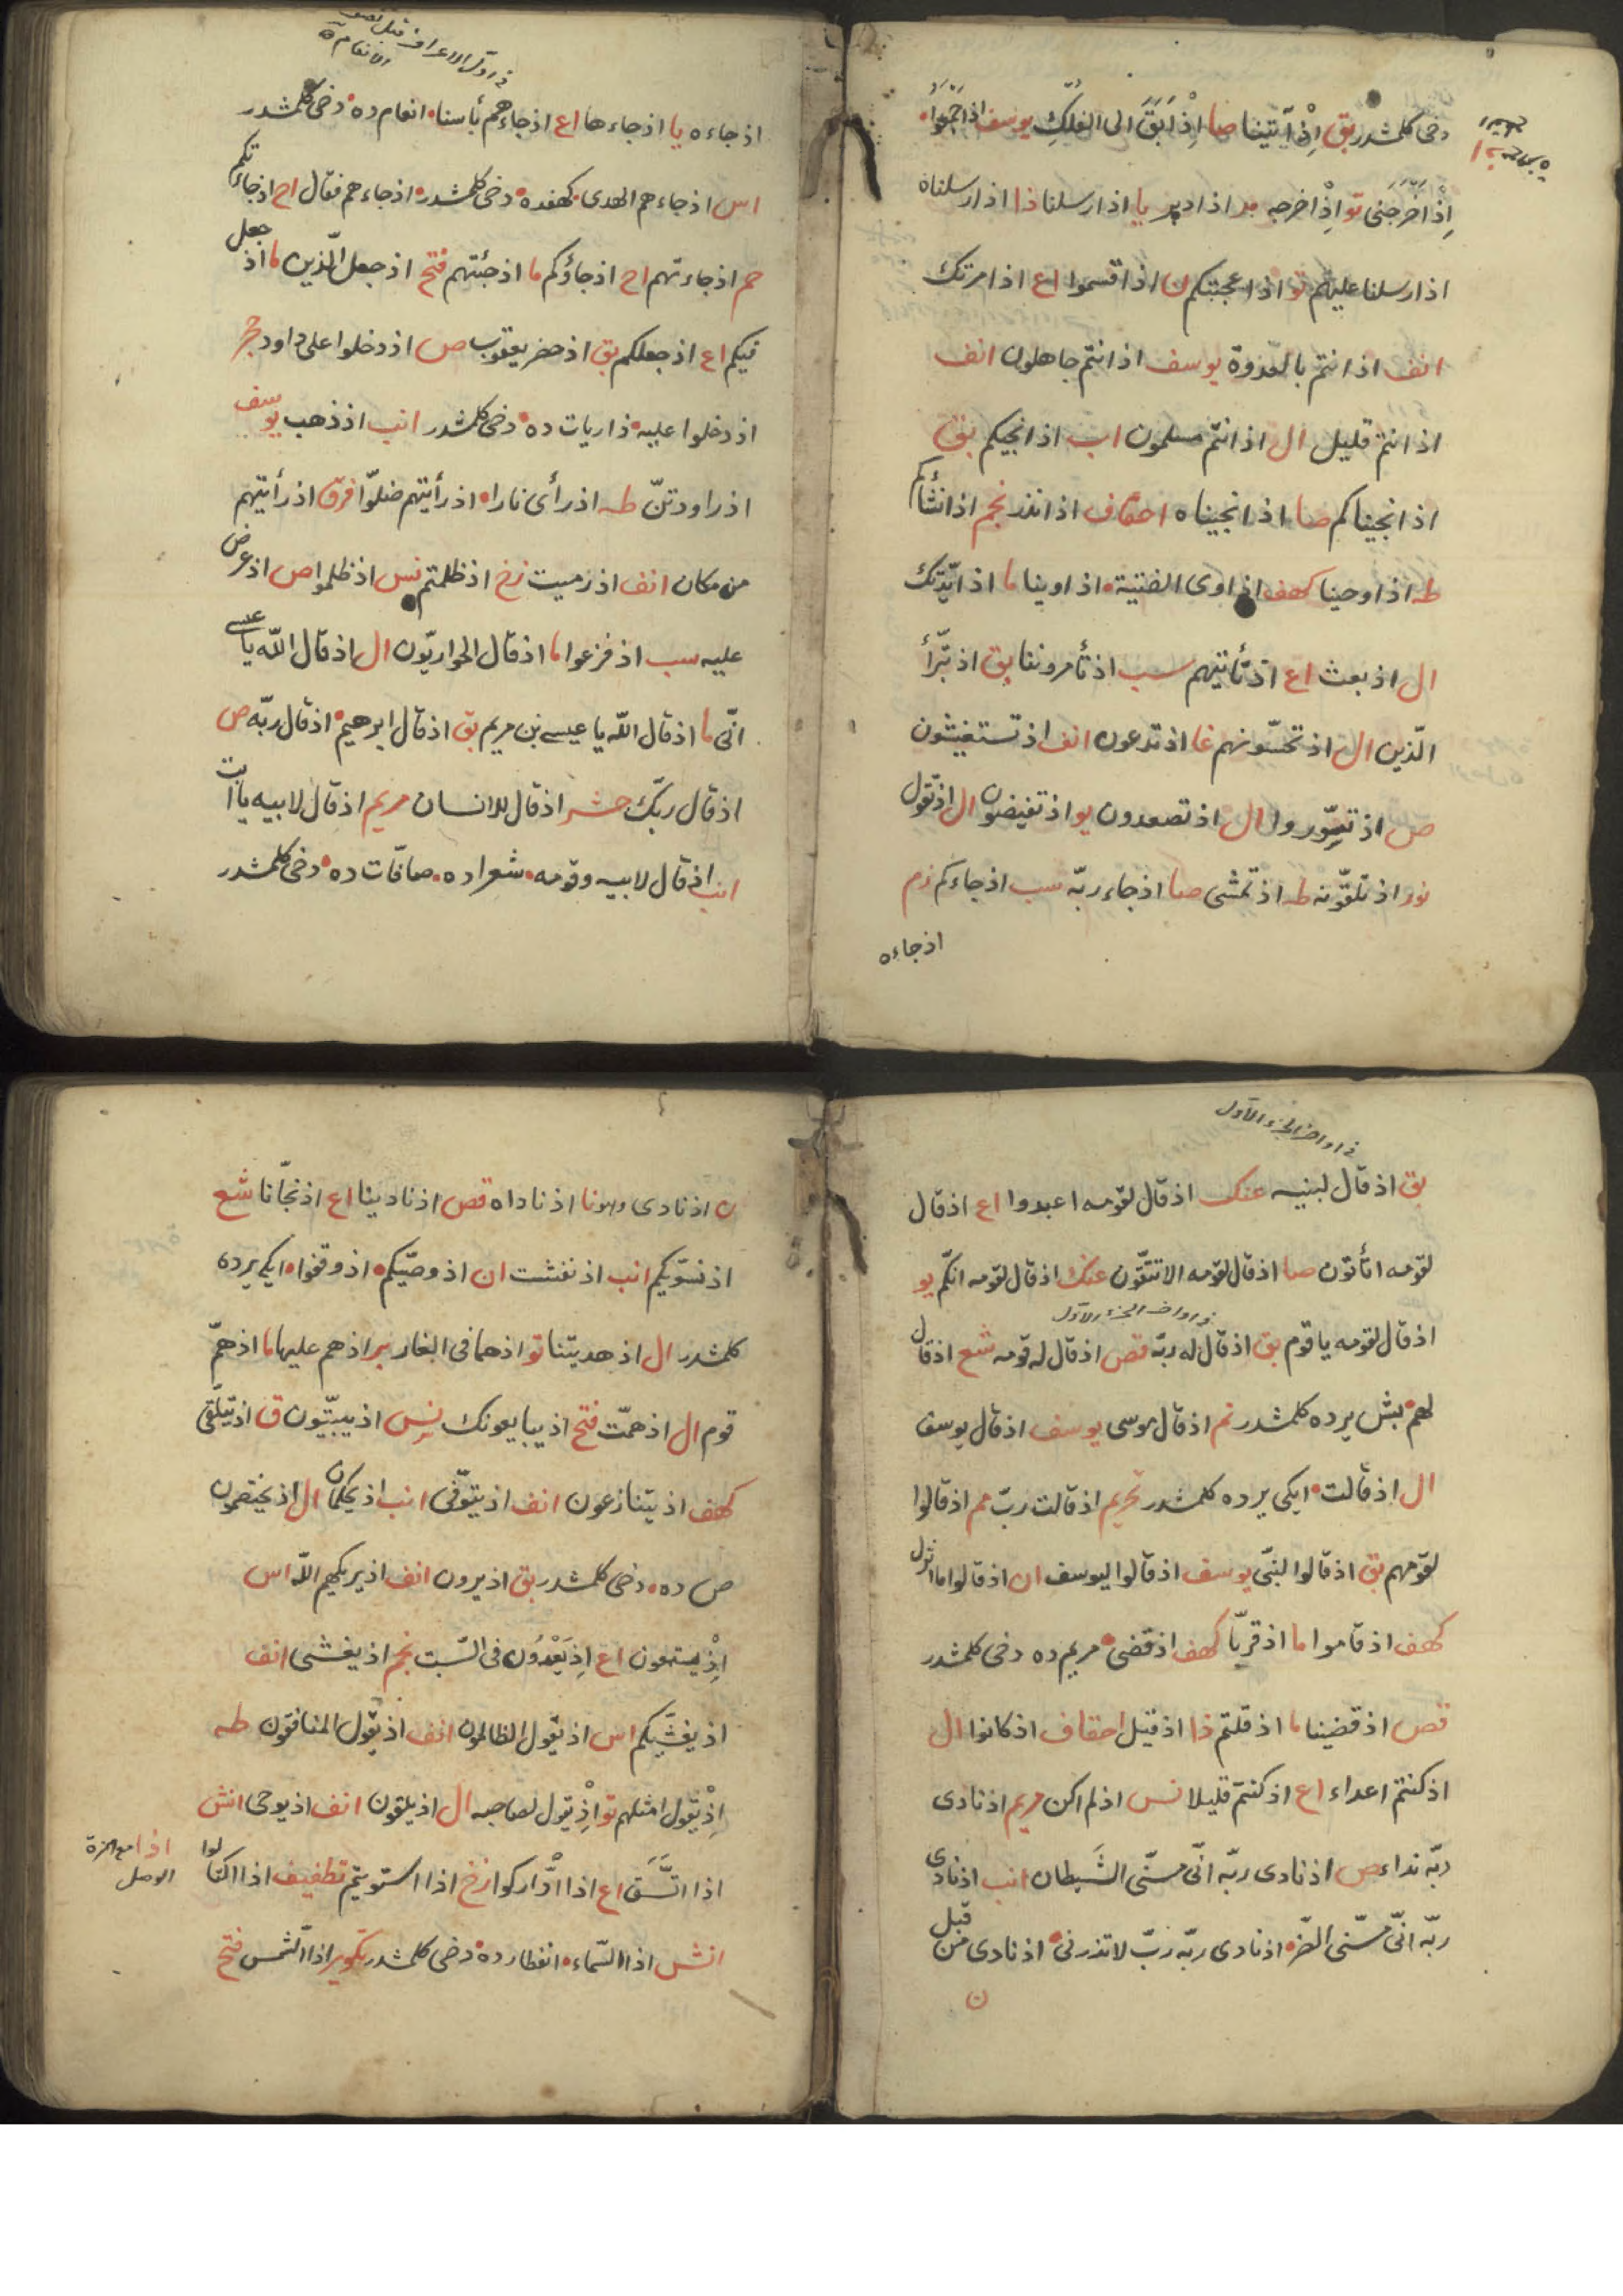 دخی کلمشدر بق اِذْ آتَيْنا صا اِذْ اَبَقَ الى الفلكِ يوسف اذ اَجْمَعُوا
اِذْ اَخْرَجَنى تو اِذْ اخرجه مد اذ ادبر يا اذ ارسلنا ذا اذ ارسلناه
اذ ارسلنا عليهم تو اذ اعجبتكم ن اذ اقسموا اع اذ امرتك
انف اذ انتم بالعدوة يوسف اذ انتم جاهلون انف
اذ انتم قليل ال اذ انتم مسلمون اب اذ انجيكم بق
اذ انجيناكم صا اذ انجيناه احقاف اذ انذر نجم اذ انشأكم
طه اذ اوحينا كهف اذ اوى الفتية اذ اوينا ما اذ ايّدتك
ال اذ بعث اع اذ تأتيهم سب اذ تأمروننا بق اذ تبرّأ
الّذين ال اذ تحسّونهم غا اذ تدعون انف اذ تستغيثون
ص اذ تسوّروا ال اذ تصعدون يو اذ تفيضون ال اذ تقول
نور اذ تلقّونه طه اذ تمشى صا اذ جاء ربّه سب اذ جاءكم زم
اذ جاءه
اذ جاءه يا اذ جاءها اع اذ جاءهم بأسنا انعام ده دخی کلمشدر
اس اذ جاءهم الهدى كهفده دخی کلمشدر اذ جاءهم فقال اح اذ جاءتكم
حم اذ جاءتهم اح اذ جاؤكم ما اذ جئتهم فتح اذ جعل الّذين ما اذ جعل
فيكم اع اذ جعلكم بق اذ حضر يعقوب ص اذ دخلوا على داود حجر
اذ دخلوا عليه ذاريات ده دخی کلمشدر انب اذ ذهب يوسف
اذ راودتنّ طه اذ رأى نارا اذ رأيتهم ضلّوا فرق اذ رأيتهم
من مكان انف اذ رميت زخ اذ ظلمتم نس اذ ظلموا ص اذ عرض
عليه سب اذ فزعوا ما اذ قال الحواريّون ال اذ قال اللّه يا عيسى
انّى ما اذ قال اللّه يا عيسى بن مريم بق اذ قال ابرهيم اذ قال ربّه ص
اذ قال ربّك حشر اذ قال للانسان مريم اذ قال لابيه يا ابت
انب اذ قال لابيه وقومه شعراده صافّات ده دخی کلمشدر
فى اواخر الجزء الاوّل
بق اذ قال لبنيه عنك اذ قال لقومه اعبدوا اع اذ قال
لقومه اتأتون صا اذ قال لقومه الا تتّقون عنك اذ قال لقومه انكم يو
فى اواخر الجزء الاوّل
اذ قال لقومه يا قوم بق اذ قال له ربّه قص اذ قال له قومه شع اذ قال
لهم بش يرده کلمشدر نم اذ قال موسى يوسف اذ قال يوسف
ال اذ قالت ایکی يرده کلمشدر تحريم اذ قالت ربّ مم اذ قالوا
لقومهم بق اذ قالوا لنبىّ يوسف اذ قالوا ليوسف ان اذ قالوا ما انزل
كهف اذ قاموا ما اذ قرّبا كهف اذ قضى مريم ده دخی کلمشدر
قص اذ قضينا ما اذ قلتم ذا اذ قيل احقاف اذ كانوا ال
اذ كنتم اعداء اع اذ كنتم قليلا نس اذ لم اكن مريم اذ نادى
ربّه نداء ص اذ نادى ربّه انّى مسّنى الشّيطان انب اذ نادى
ربّه انّى مسّنى الضّر اذ نادى ربّه ربّ لا تذرنى اذ نادى من قبل
ن
ن اذ نادى اذ ناداه قص اذ نادينا اع اذ نجّانا شع
اذ نسوّيكم انب اذ نفشت ان اذ وصّيكم اذ وقفوا ایکی يرده
کلمشدر ال اذ هديتنا تو اذ هما فى الغار بر اذ هم عليها ما اذ همّ
قوم ال اذ همّت فتح اذ يبايعونك نس اذ يبيّتون ق اذ يتلقّى
كهف اذ يتنازعون انف اذ يتوفّى انب اذ يحكمان ال اذ يختصمون
ص ده دخی کلمشدر بق اذ يرون انف اذ يريكهم اللّه اس
اِذْ يستمعون اع اِذ يَعْدُون فى السّبت نجم اذ يغشى انف
اذ يغشّيكم اس اذ يقول الظالمون انف اذ يقول المنافقون طه
اِذْ يقول امثلهم تو اِذْ يقول لصاحبه ال اذ يلقون انف اذ يوحى انش
اذا مع همزة الوصل
اذا اتَّسَق اع اذا ادّاركوا زخ اذا استويتم تطفيف اذا اكتالوا
انش اذا السّماء انفطار ده دخی کلمشدر تكوير اذا الشّمس فتح